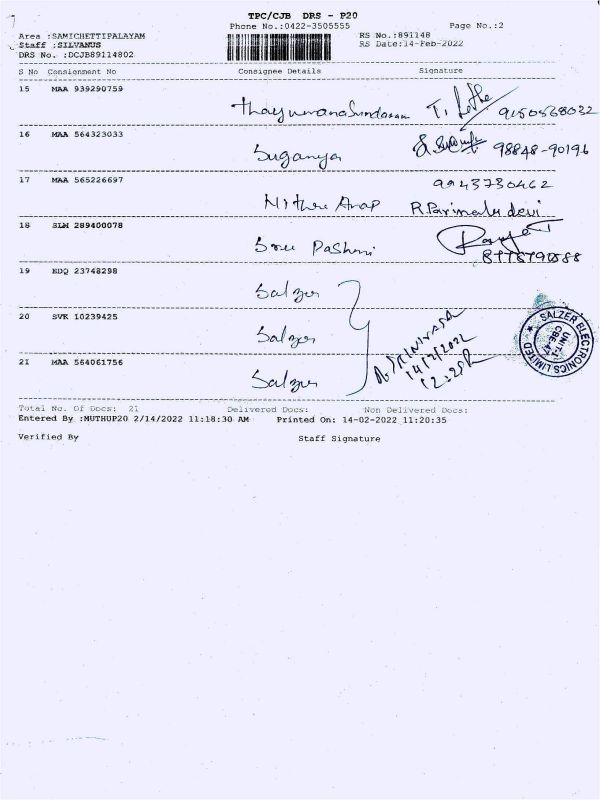 TPC/CJB DRS - P20
Phone No.:0422-3505555
Page No.:2
Area :SAMICHETTIPALAYAM
Staff :SILVANUS
DRS No. :DCJB89114802
RS No.:891148
RS Date:14-Feb-2022
S No Consignment No Consignee Details Signature
15 MAA 939290759
Thayumanasundaram 9150568032
16 MAA 564323033
Suganya 98848-90196
17 MAA 565226697 9943730462
R. Parimala devi
18 SLM 289400078
Sree
19 EDQ 23748298
Salzer
20 SVK 10239425
Salzer
21 MAA 564061756
Salzer
14/2/2022
SALZER ELECTRONICS LIMITED
UNIT-I
CBE-47
Total No. Of Docs: 21 Delivered Docs: Non Delivered Docs:
Entered By :MUTHUP20 2/14/2022 11:18:30 AM Printed On: 14-02-2022 11:20:35
Verified By Staff Signature